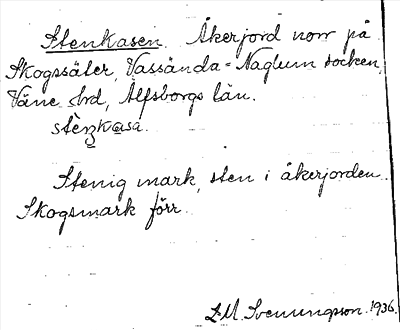 Stenkasen Åkerjord norr på
Skogssäter, Vassända-Naglum socken,
Väne hrd, Älfsborgs län.
stèn̥kasa.
Stenig mark, sten i åkerjorden.
Skogsmark förr.
L M. Svenungsson. 1936.